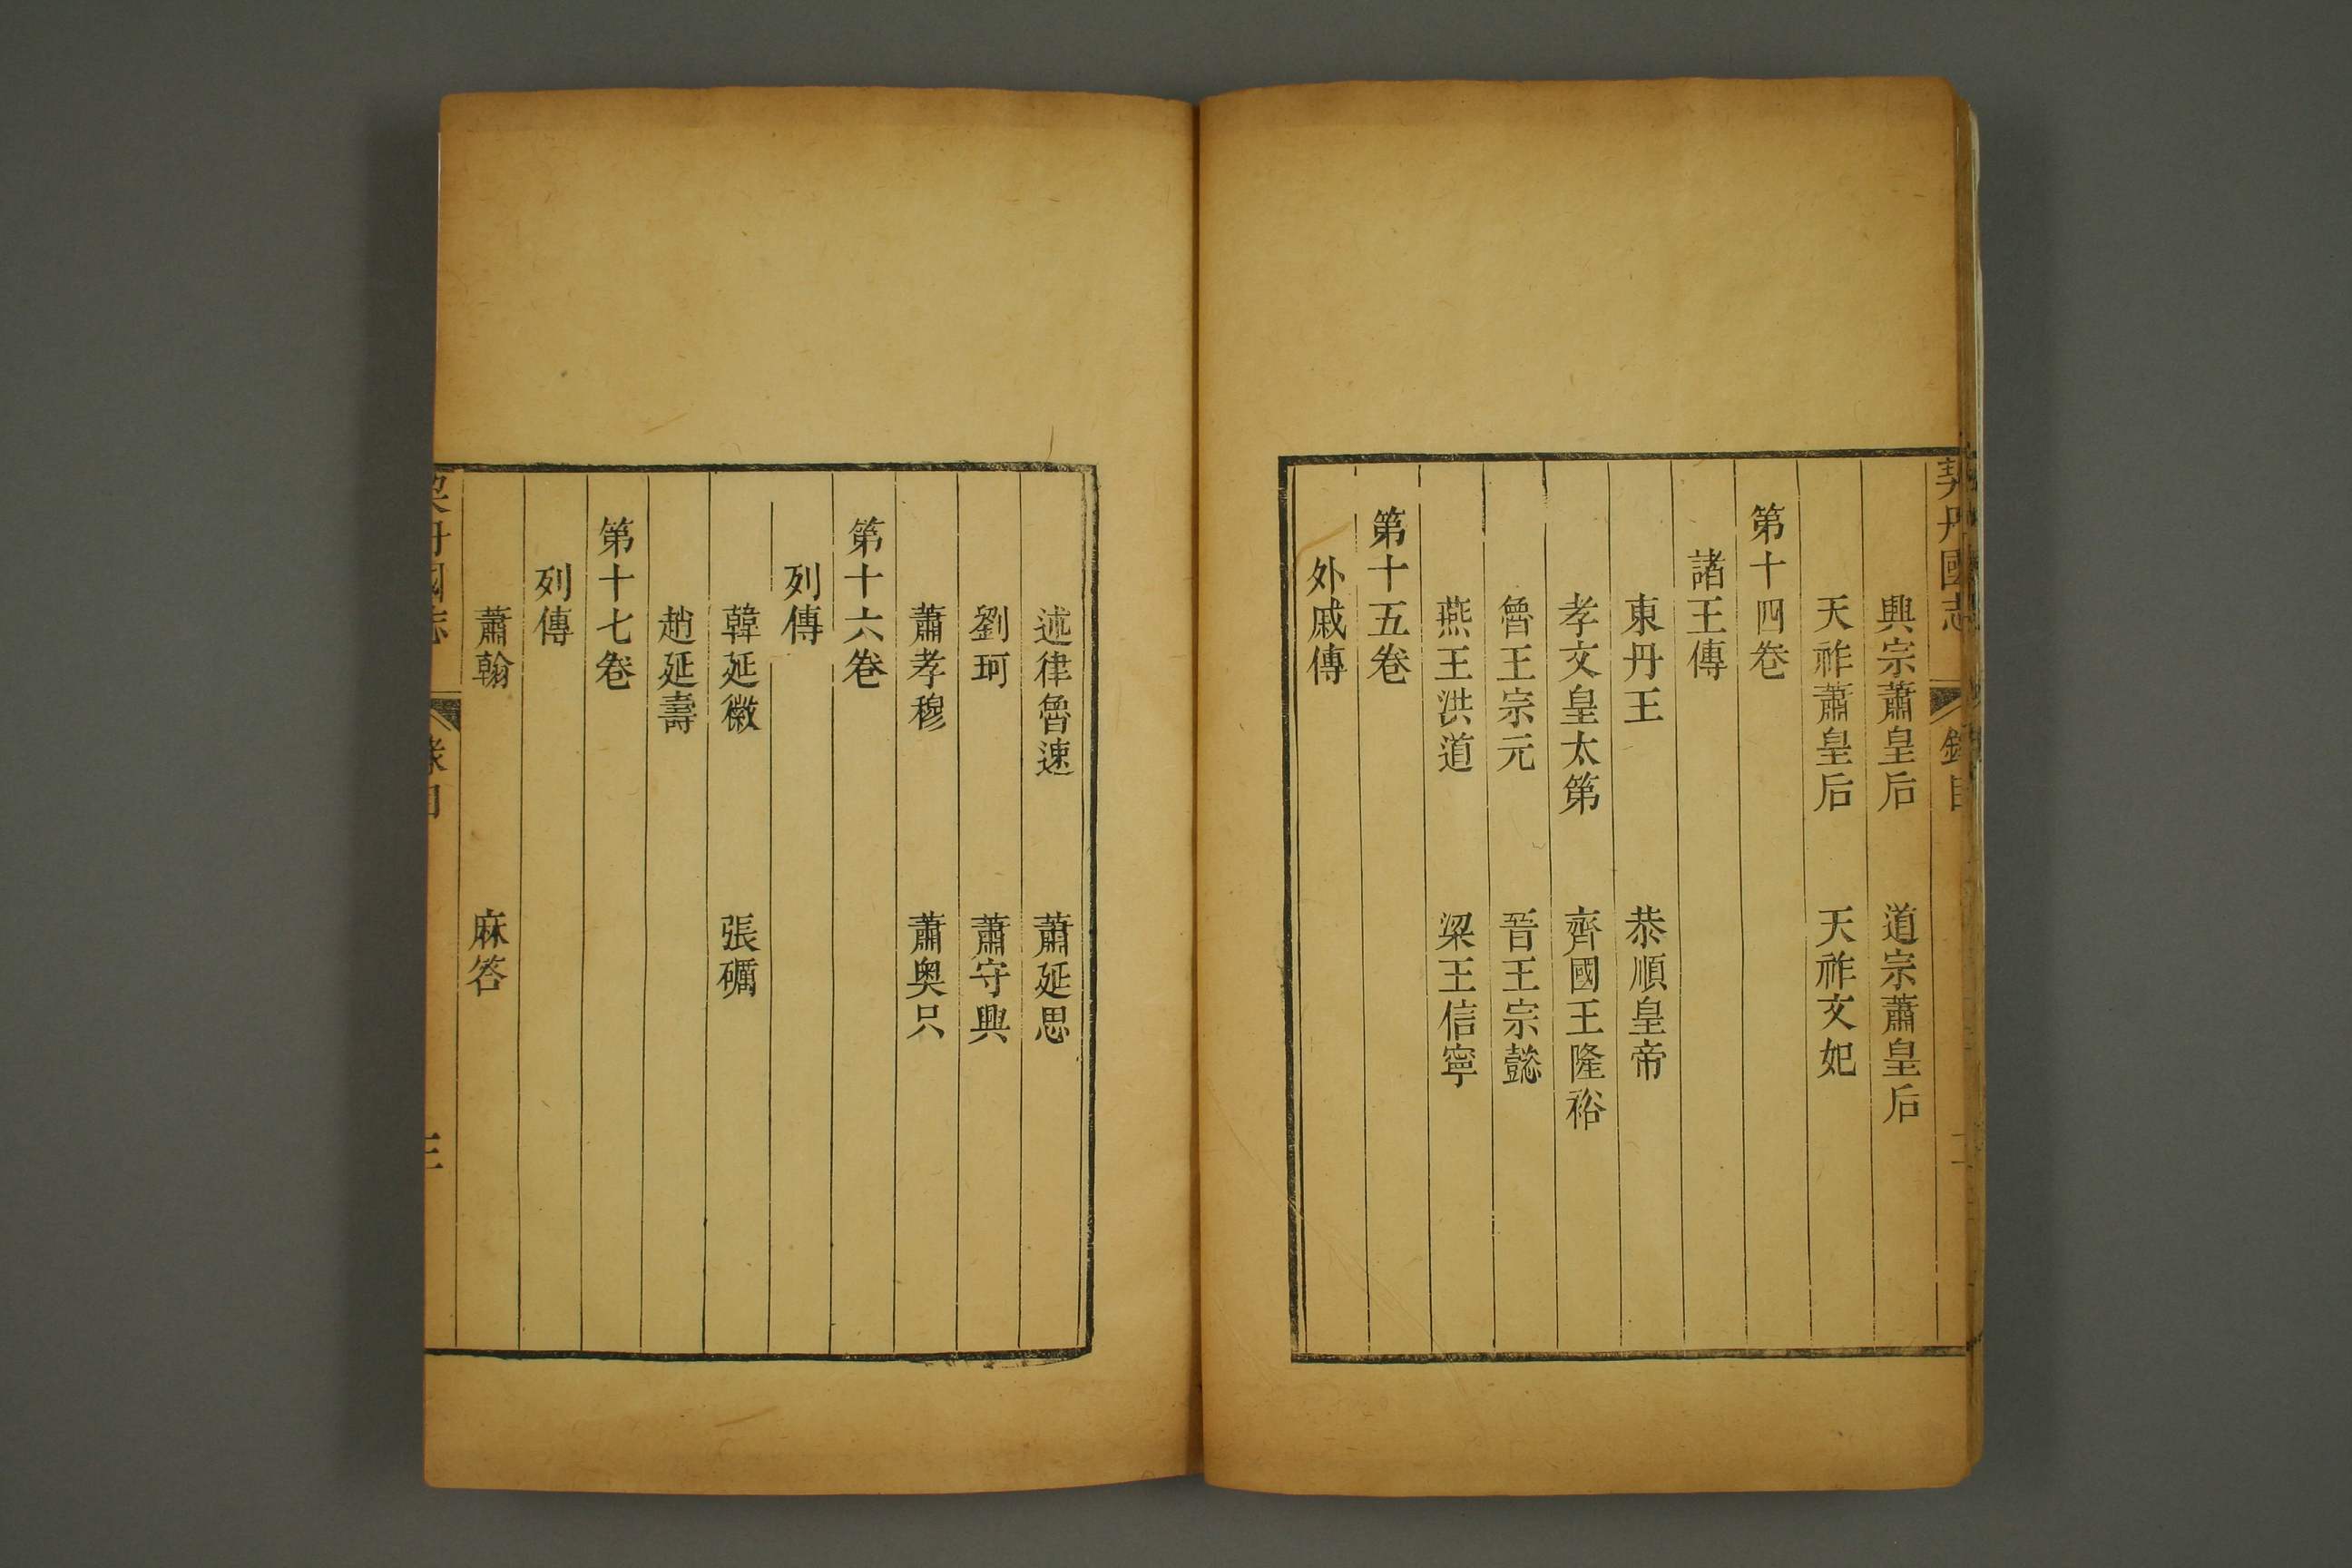 契丹國志 錄目 二
興宗蕭皇后 道宗蕭皇后
天祚蕭皇后 天祚文妃
第十四卷
諸王傳
東丹王 恭順皇帝
孝文皇太第 齊國王隆裕
魯王宗元 晉王宗懿
燕王洪道 梁王信寧
第十五卷
外戚傳
述律魯速 蕭延思
劉珂 蕭守興
蕭孝穆 蕭奥只
第十六卷
列傳
韓延徽 張礪
趙延壽
第十七卷
列傳
蕭翰 麻答
契丹國志 錄目 三